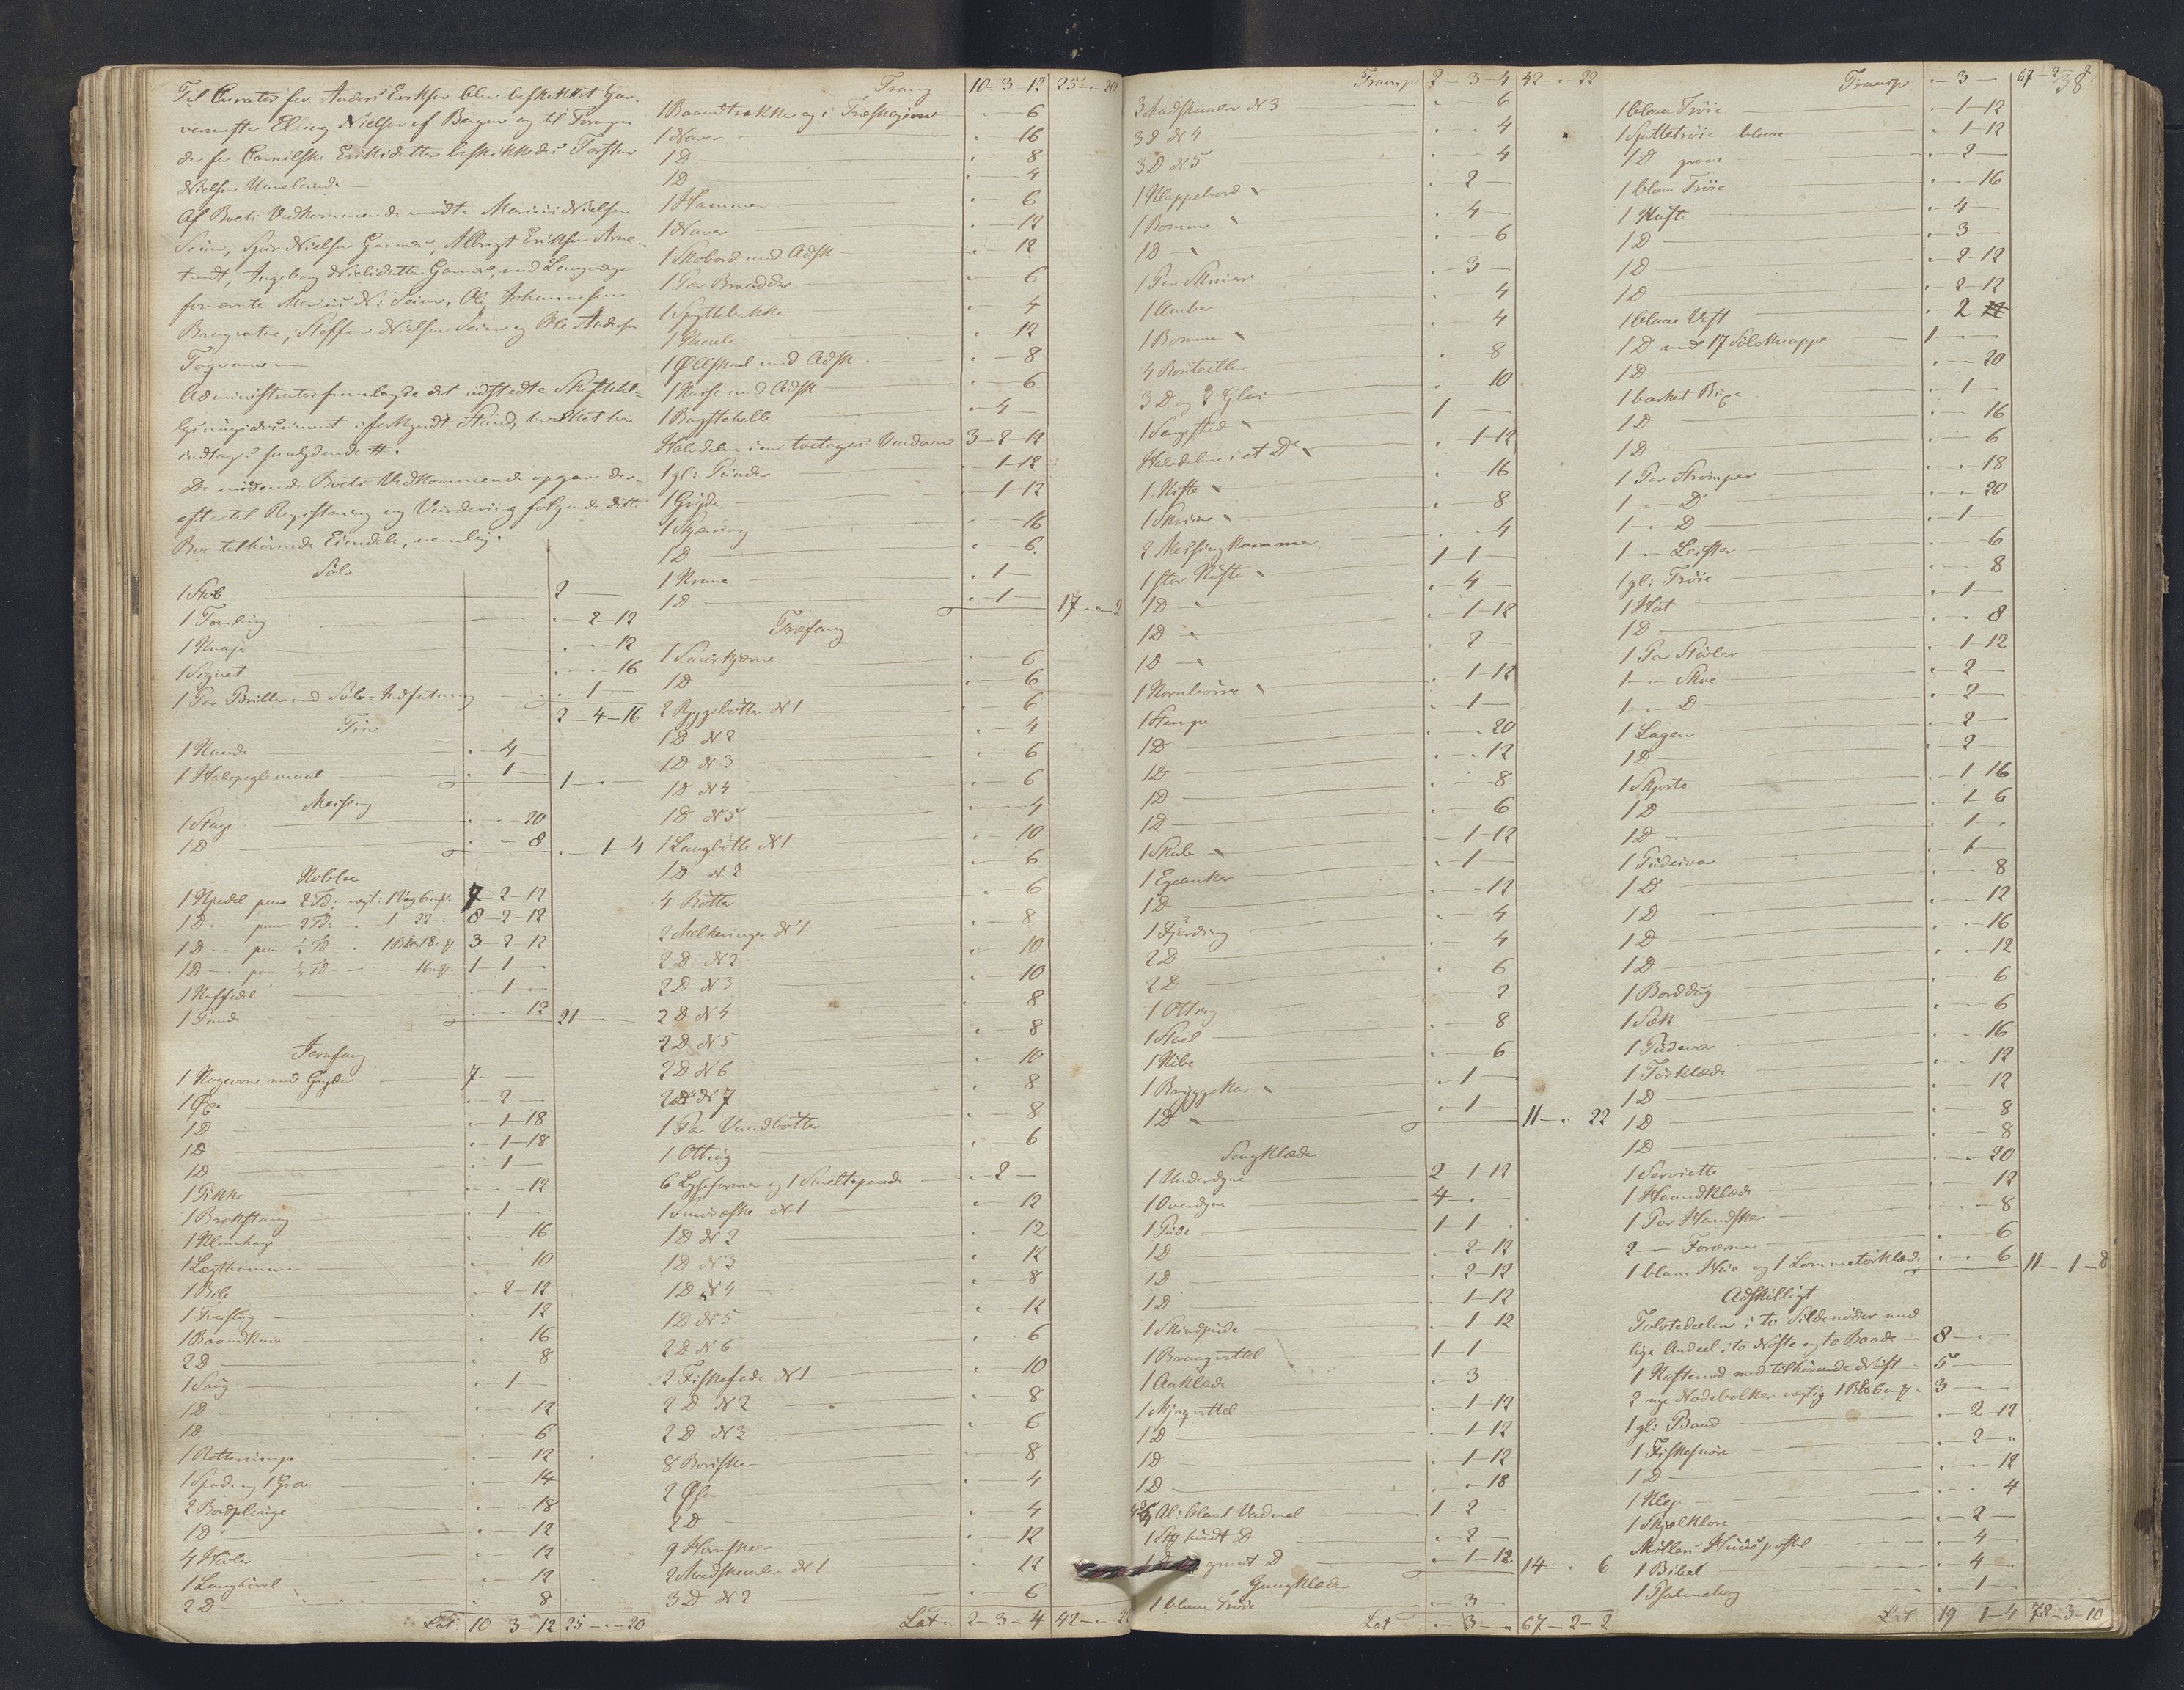 Til Curator for Anders Eriksen blev beskikket Gar-
vermester Elling Nielsen af Bergen og til Formyn-
der for Camilske Eriksdatter beskikkedes Torsten
Nielsen
Af Boets Vedkommende mødte Marius Nielsen
Seim, Nielsen Garmer, Albrigt Eriksen Arne-
tvedt, Ingeborg Nielsdatter med Laugværge
fornævnte Marius N: Seim, Ole Johannesen
Steffen Nielsen Seim og Ole Andersen

Administrator fremlagde det udstedte Skiftetil-
lysningsdocument i forkyndt Stand, hvilket her
indtages saalydende #.
De mødende Boets Vedkommende opgav der-
efter til Registrering og Vurdering følgende dette
Boe tilhørende Eiendele, nemlig:
Sølv
1 Skeb 2 —
1 Tomling . 2-12
1 Knap . . - 12
1 Signet . . - 16
1 Par Briller med Sølv-Indfatning . - 1 —
2-4-16
Tin
1 Kande . 4 —
1 Halvpeglemaal . 1 — 1 —
Messing
1 Stage . . 20
1 D . - 8 . 1-4
Kobber
1 Kjedel paa 2 Td: vægt: 1 Vog 6 mp. 7-2-12
1 D. paa 2 Td: . 1-22-. 8-2-12
1 D paa ½ Td 18 mp 3-2-12
1 D paa ½ Td 16 mp. 1-1 -
1 Kaffedel . 1 -
1 Pande . . 12 21 —
Jernfang
1 Kogeovn med Gryder 7 —
1 Øx . 2 —
1 D . 1-18
1 D . 1-18
1 D . 1 —
1 Pikke . . - 12
1 Brækstang . 1 —
1 Klamhage . 16
1 Lægthammer . 10
1 Bile . 2-12
1 Tverslag . 12
1 Baandkniv . 16
2 D . 8
1 Saug . 1 —
1 D . 12
1 D . 6
1 12
1 Spade og 1 Grev . 14
2 Bordplenge . 18
1 D . 12
4 Høvler . 12
1 Langhøvel . 12
2 D . 8
Lat: 10 3-12 25 - . - 20
Transp 10-3 12 25 - . - 20
1 Baandtrække og i Træskojern . - 6
1 Naver . 16
1 D . 8
1 D . 4
1 Hammer . 6
1 Naver . 12
1 Skobord med Adsk . 12
1 Par Brandder . 6
1 Spyttebakke . 4
1 12
1 Ølskaal med Adsk . - 8
1 Kasse med Adsk . 6
1 Bagstehelle . - 4 —
Halvdelen i en toetages Vindovn 3-2-12
1 gl: Pander . 1-12
1 Gryde . 1-12
1 Skjæring . - 16
1 D . - 6.
1 Krane . 1 —
1 D . - 1 — 17 - . - 2
Træfang
1 Smørkjærne . 6
1 D . 6
2 Ryggebøtter N 1 . 6
1 D N 2 . 4
1 D N 3 . 6
1 D N 4 . 6
1 D N 5 . 4
1 Langbøtte N 1 . 10
1 D N 2 . 6
4 Bøtter . 6
2 Melkeringe N 1 . 8
2 D N 2 . 10
2 D N 3 . 10
2 D N 4 . 8
2 D N 5 . 8
2 D N 6 . 10
2 D N 7 . 8
1 Par Vandbøtter . 8
1 Otting . 6
6 Lyseformer og 1 Smeltepande . 2 —
1 Smøræske N 1 . 12
1 D N 2 . 12
1 D N 3 . 12
1 D N 4 . 8
1 D N 5 . 12
2 D N 6 . . 6
2 Fiskefade N 1 . 10
2 D N 2 . 8
2 D N 3 . 6
8 . 8
2 . 4
2 D . 4
9 Hornskeer . 12
2 Madskaaler N 1 12
3 D N 2 . 6
Lat: 2-3-4 42 - . 22
Transp 2-3-4 42 - . 22
3 Madskaaler N 3 . 6
3 D N 4 . . 4
3 D N 5 . 4
1 Klappebord . 2 —
1 Bomme . 4 —
1 D . 6
1 Par Skrier . 3 —
1 Amber . 4
1 Bomme . 4
4 Bouteiller . 8
3 D og 2 Glas . 10
1 Sengsted 1 —
Halvdelen i et D . 1-12
1 Kiste . - 16
1 Skriin . 8
2 Messing Kammer . - 4
1 stor Kiste 1 1 —
1 D . 4 —
1 D . 1-12
1 D . 2 —
1 Kornbøring . 1-12
1 Stampe . 1 —
1 D . . 20
1 D . - 12
1 D . - 8
1 D . 6
1 Skab . 1-12
1 Egeanker . 1 —
1 D . - 12
1 Fjerding . 4
2 D . 4
2 D . 6
1 Otting . 2
1 Stoel . 8
1 Kibe . 6
1 Bryggekar . 1 —
1 D . 1 11 - . 22
Sengklæder
1 Underdyne 2-1-12
1 Overdyne 4 - . —
1 Pude 1-1 - .
1 D . 2-12
1 D . 2-12
1 D . 1-12
1 Skindpude . 1 12
1 Brangvittel 1-1 —
1 Aaklæde . 3 —
1 Mjugvittel . 1-12
1 D . 1-12
1 D . 1-12
1 D . . 18
Al: blaat Vadmel 1-2 —
1 hvidt D . 2 —
graat D . 1-12 14 . 6
Gangklæder
1 blaa Trøie . 3 —
Lat . 3 — 67-2-2
Transp . 3 — 67-2-2.
38
1 blaa Trøie . 1-12
1 Spittetrøie blaae . 1-12
1 D graae . 2 —
1 blaa Trøie . . 16
1 Kufte . 4 —
1 D . 3 —
1 D . 2-12
1 D . 2-12
1 blaae Vest . 2
1 D med 17 Sølvknapper 1 —
1 D . - 20
1 barket Buxe . 1 —
1 D . 16
1 D . 6
1 Par Strømper . . 18
1 - D . . 20
1 - D . 1 —
1 - Leister . 6
1 gl: Trøie . 8
1 Hat . 1 —
1 D . 8
1 Par Støvler . 1 12
1 - Skoe . 2 —
1 - D . 2 —
1 Lagen . 2 —
1 D . 2 —
1 Skjorte . 1-16
1 D . 1-6
1 D . 1 - .
1 Pudevar . 1 —
1 D . 8
1 D . 12
1 D . 16
1 D . 12
1 Borddug . 6
1 Sæk . 6
1 Pudevar . 16
1 Tørklæde . 12
1 D . 12
1 D . 8
1 D . 8
1 Serviette . 20
1 Haandklæde . 12
1 Par Handsker . 8
2 — Forærmer . 6
1 blaa Hue og 1 Lommetørklæde . . 6 11-1-8
Adskilligt
Tolvtedeelen i to Sildenøder med
lige Andeel i to Nøste og to Baade 8 —
1 Kastenod med tilhørende Nøst 5 —
2 nye Nodebolker vægtig 3 —
1 gl: Baad . 2-12
1 Fiskesnøre . 2 —
1 D . 12
1 Klep . . 4
1 Skjælklove . 2 —
Møllers Huuspostil . 4 —
1 Bibel . 4 —
1 Psalmebog . 1 —
Lat 19 1-4 78-3-10